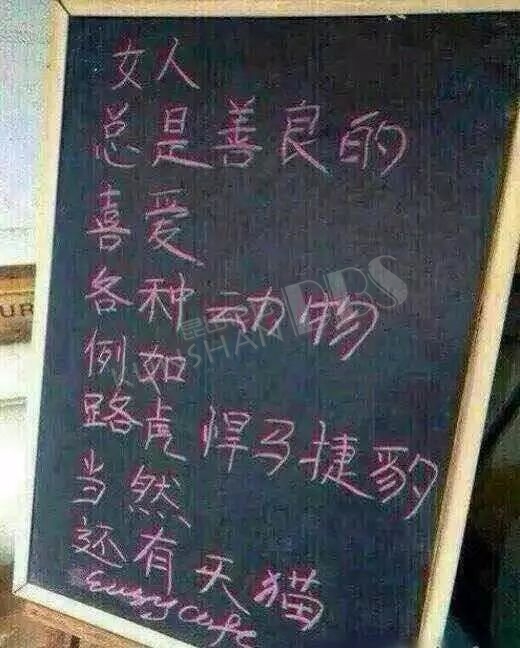 女人
总是善良的
喜爱
各种动物
例如
路虎 悍马捷豹
当然
还有天猫
KUNSHAN BBS
UR